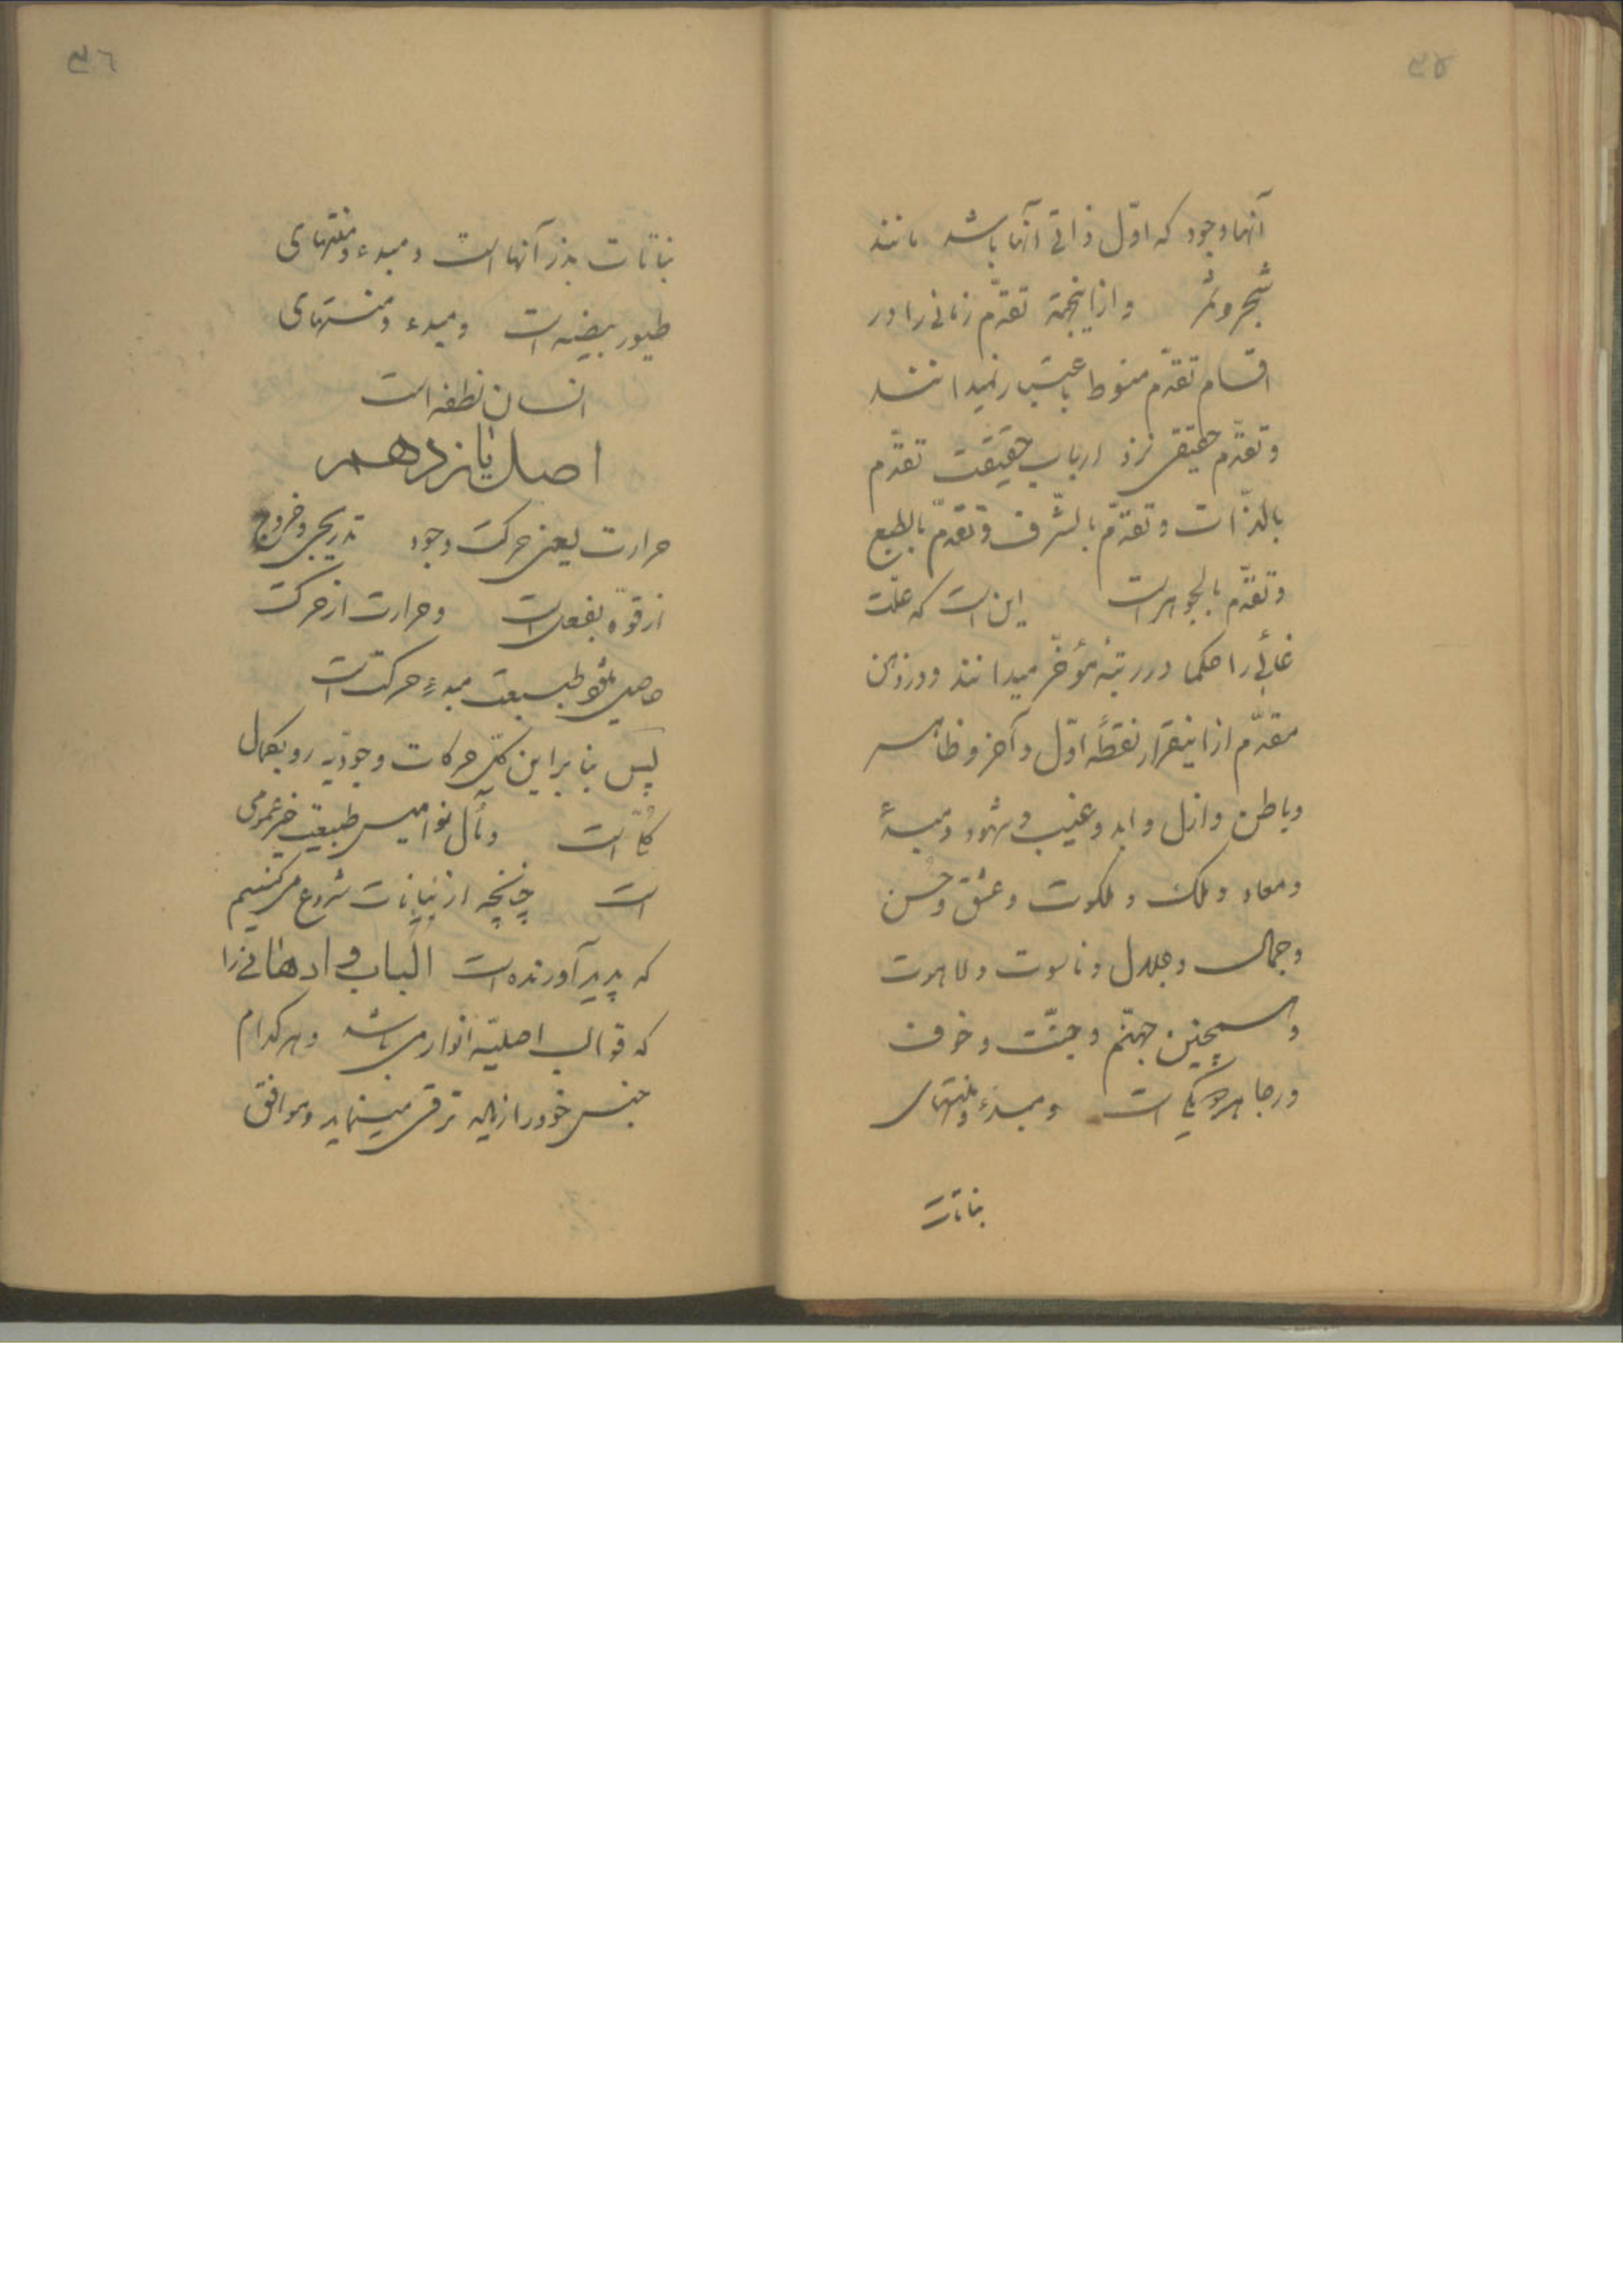 ۳۵
آنها وجود که اوّل ذاتی آنها باشد مانند
شجر و ثمر و ازاینجهة تقدّم زمانی را در
اقسام تقدّم منوط باعتبار نمیدانند
و تقدّم حقیقی نزد ارباب حقیقت تقدّم
بالذّات و تقدّم بالشّرف و تقدّم بالطبع
و تقدّم بالجوهر است این است که علّت
غائی را حکما در رتبه مؤخّر میدانند و در ذهن
مقدّم ازاینقرار نقطهٔ اوّل و آخر و ظاهر
و باطن و ازل و ابد و غیب و شهود و مبدأ
و معاد و ملک و ملکوت و عشق و حُسن
و جمال و جلال و ناسوت و لاهوت
و همچنین جهنّم و جنّت و خوف
و رجا هر دو یکی است و مبدء و منتهای
نباتات
۳٦
نباتات بذر آنها است و مبدء و منتهای
طیور بیضه است و مبدء و منتهای
انسان نطفه است
اصل یانزدهم
حرارت یعنی حرکت وجود تدریجی و خروج
از قوّه بفعل است و حرارت از حرکت
حاصل شود طبیعت مبدءِ حرکت است
پس بنا براین کلّ حرکات وجودیّه رو بکمال
کلّی است و مآل نوامیس طبیعت خیر عمومی
است چنانچه از نباتات شروع میکنیم
که پدید آورنده است الباب و ادهانی را
که قوالب اصلیّه انوار می باشد و هر کدام
جنس خود را ازاله ترقی مینماید و موافق